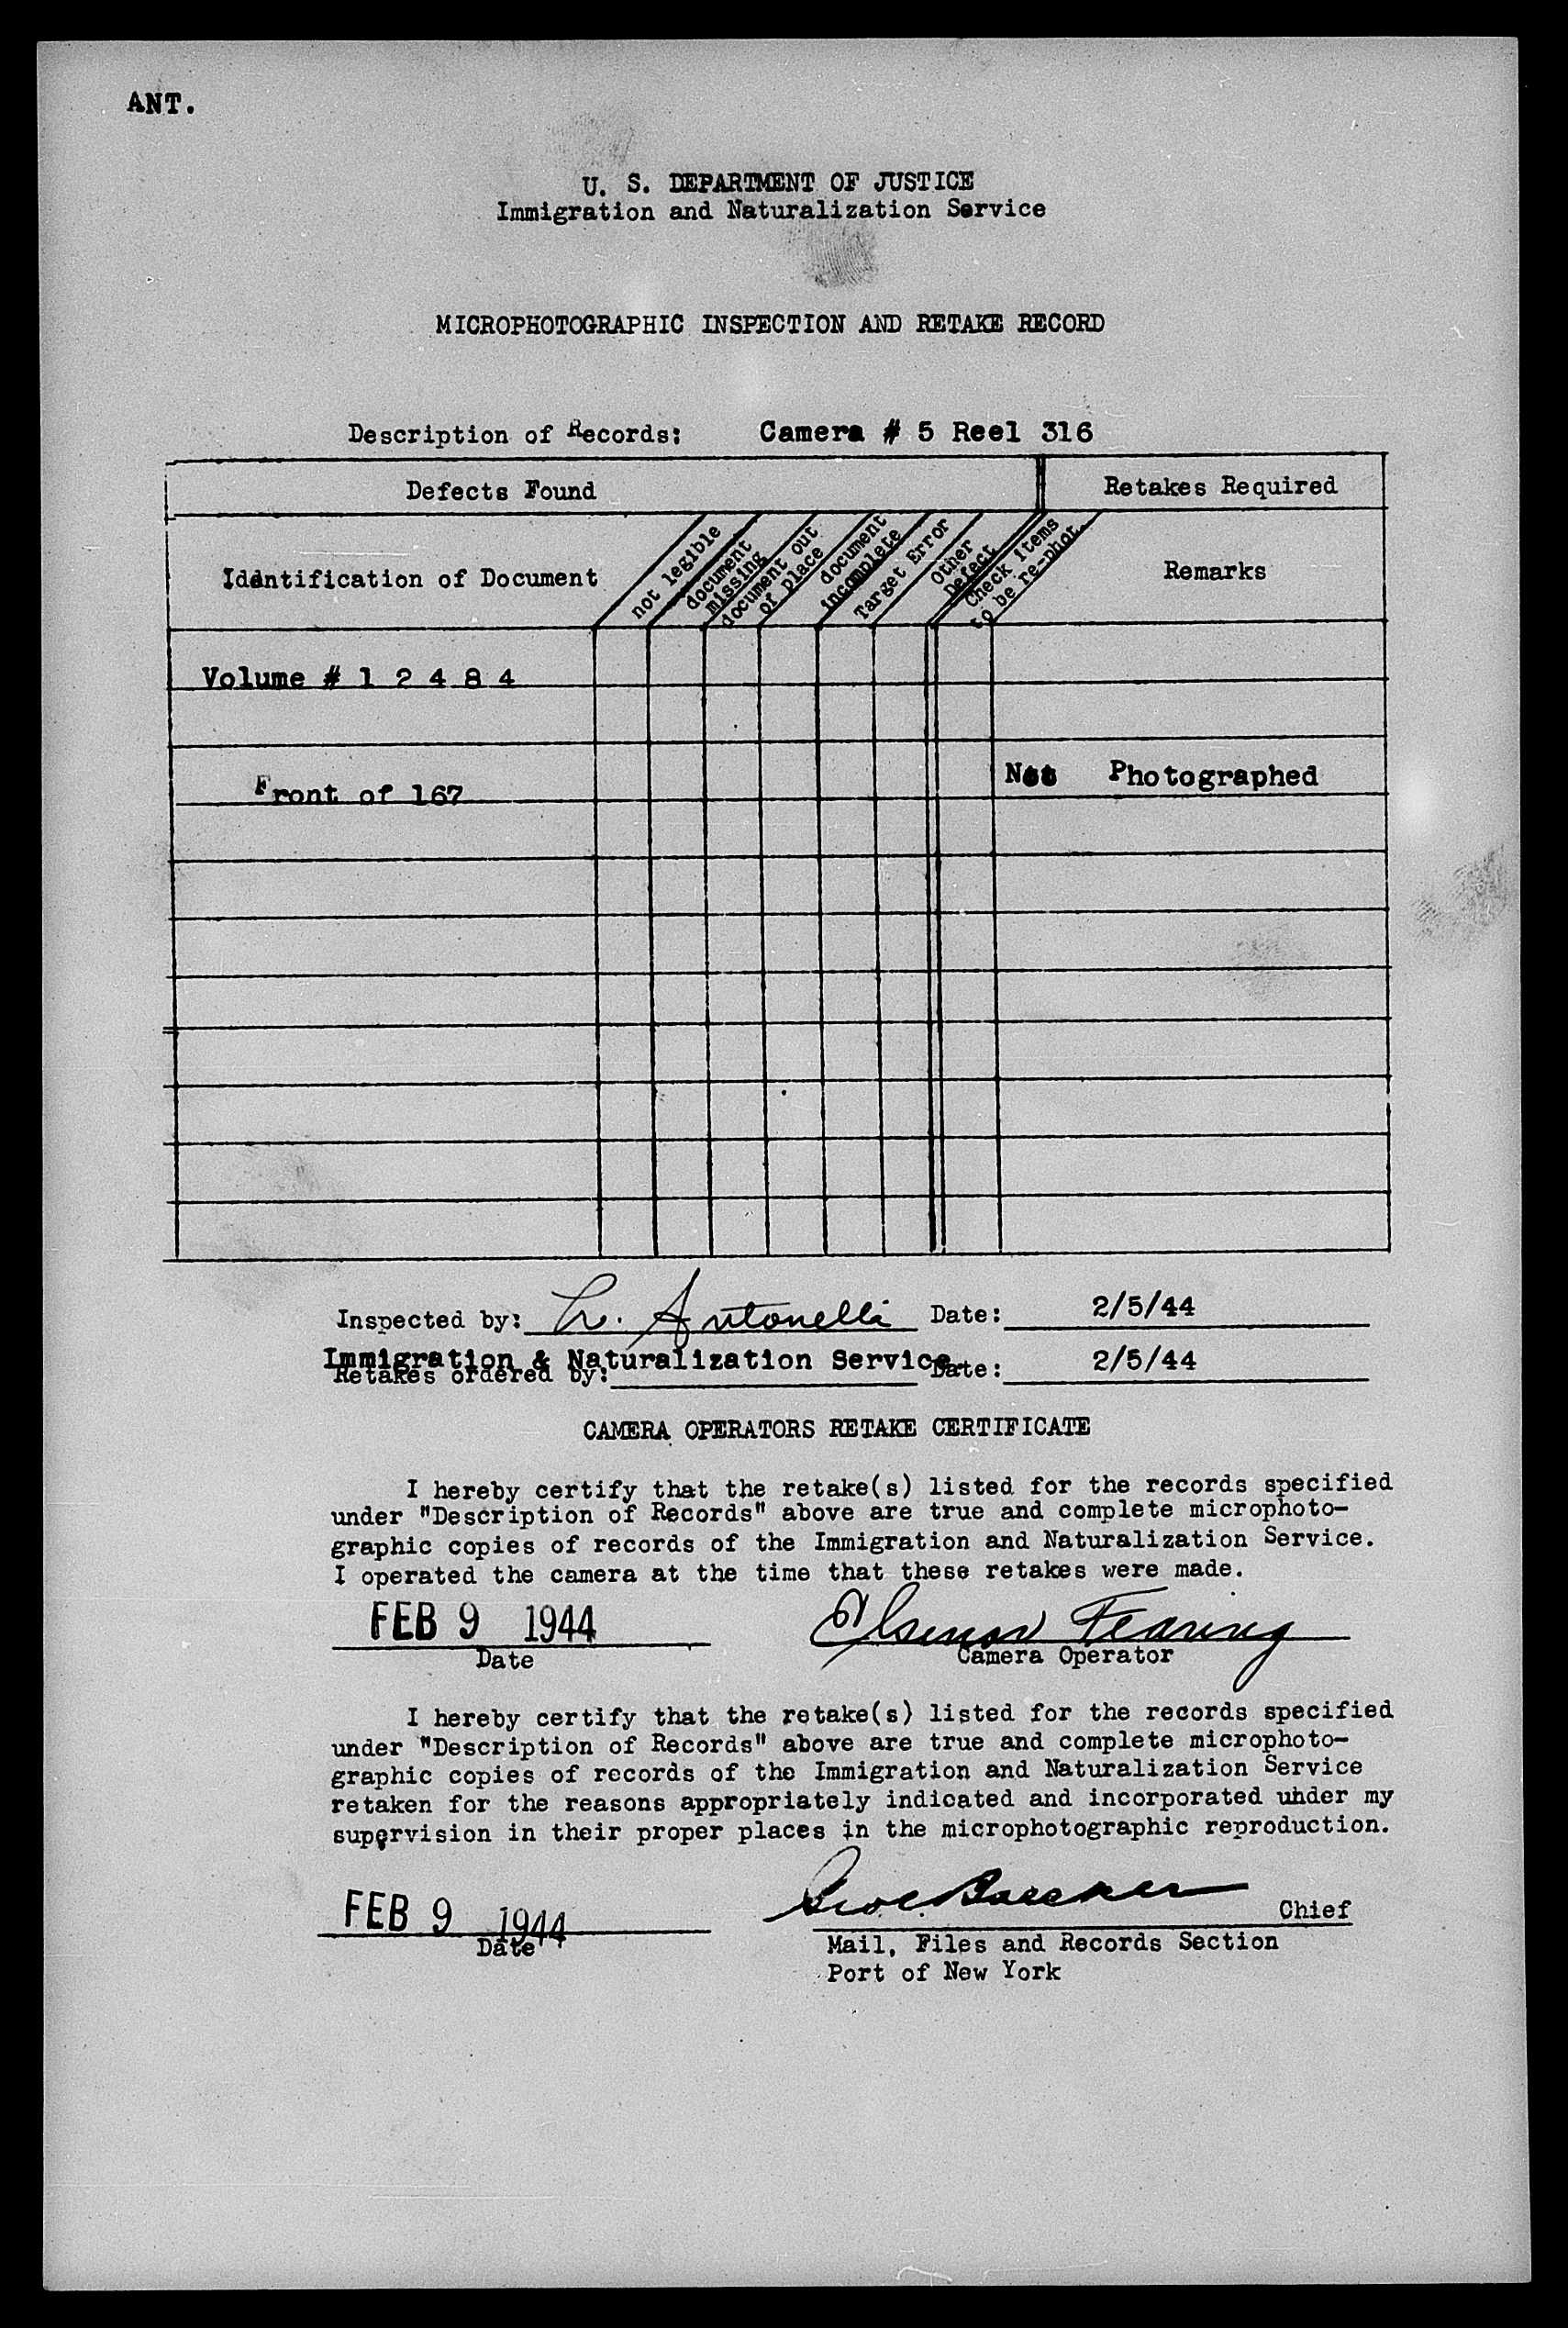 ANT.
U. S. DEPARTMENT OF JUSTICE
Immigration and Naturalization Service
MICROPHOTOGRAPHIC INSPECTION AND RETAKE RECORD
Description of Records: Camera # 5 Reel 316
Defects Found Retakes Required
Identification of Document
not legible
document
missing
document out
of place
document
incomplete
Target Error
Other
Defect
Check items
to be re-phot.
Remarks
Volume # 1 2 4 8 4
Front of 167 Not Photographed
Inspected by: L. Antonelli Date: 2/5/44
Immigration & Naturalization Service
Retakes ordered by: Date: 2/5/44
CAMERA OPERATORS RETAKE CERTIFICATE
I hereby certify that the retake(s) listed for the records specified
under "Description of Records" above are true and complete microphoto-
graphic copies of records of the Immigration and Naturalization Service.
I operated the camera at the time that these retakes were made.
FEB 9 1944 Fearing
Date Camera Operator
I hereby certify that the retake(s) listed for the records specified
under "Description of Records" above are true and complete microphoto-
graphic copies of records of the Immigration and Naturalization Service
retaken for the reasons appropriately indicated and incorporated under my
supervision in their proper places in the microphotographic reproduction.
FEB 9 1944 Chief
Date Mail, Files and Records Section
Port of New York